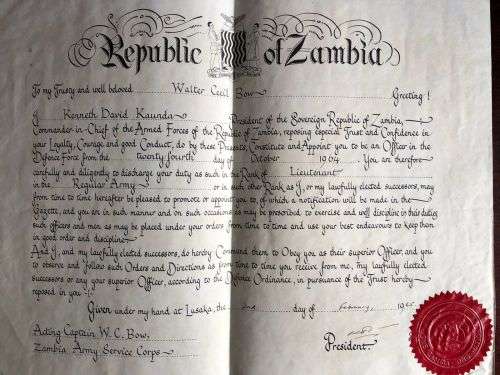 Republic of Zambia
To my Trusty and well beloved Walter Cecil Bow Greeting!
I Kenneth David Kaunda President of the Sovereign Republic of Zambia,
Commander-in-Chief of the Armed Forces of the Republic of Zambia, reposing especial Trust and Confidence in
your Loyalty, Courage and good Conduct, do by these Presents, Constitute and Appoint you to be an Officer in the
Defence Force from the twenty fourth day of October 1964. You are therefore
carefully and diligently to discharge your duty as such in the Rank of Lieutenant
in the Regular Army or in such other Rank as I, or my lawfully elected successors, may
from time to time hereafter be pleased to promote or appoint you to, of which a notification will be made in the
Gazette, and you are in such manner and on such occasions as may be prescribed to exercise and well discipline in their duties
such officers and men as may be placed under your orders from time to time and use your best endeavours to keep them
in good order and discipline.
And I, and my lawfully elected successors, do hereby Command them to Obey you as their superior Officer, and you
to observe and follow such Orders and Directions as from time to time you receive from me, my lawfully elected
successors or any your superior Officer, according to the Defence Ordinance, in pursuance of the Trust hereby
reposed in you.
Given under my hand at Lusaka, the day of February, 1965
Acting Captain W. C. Bow,
Zambia Army Service Corps
President.